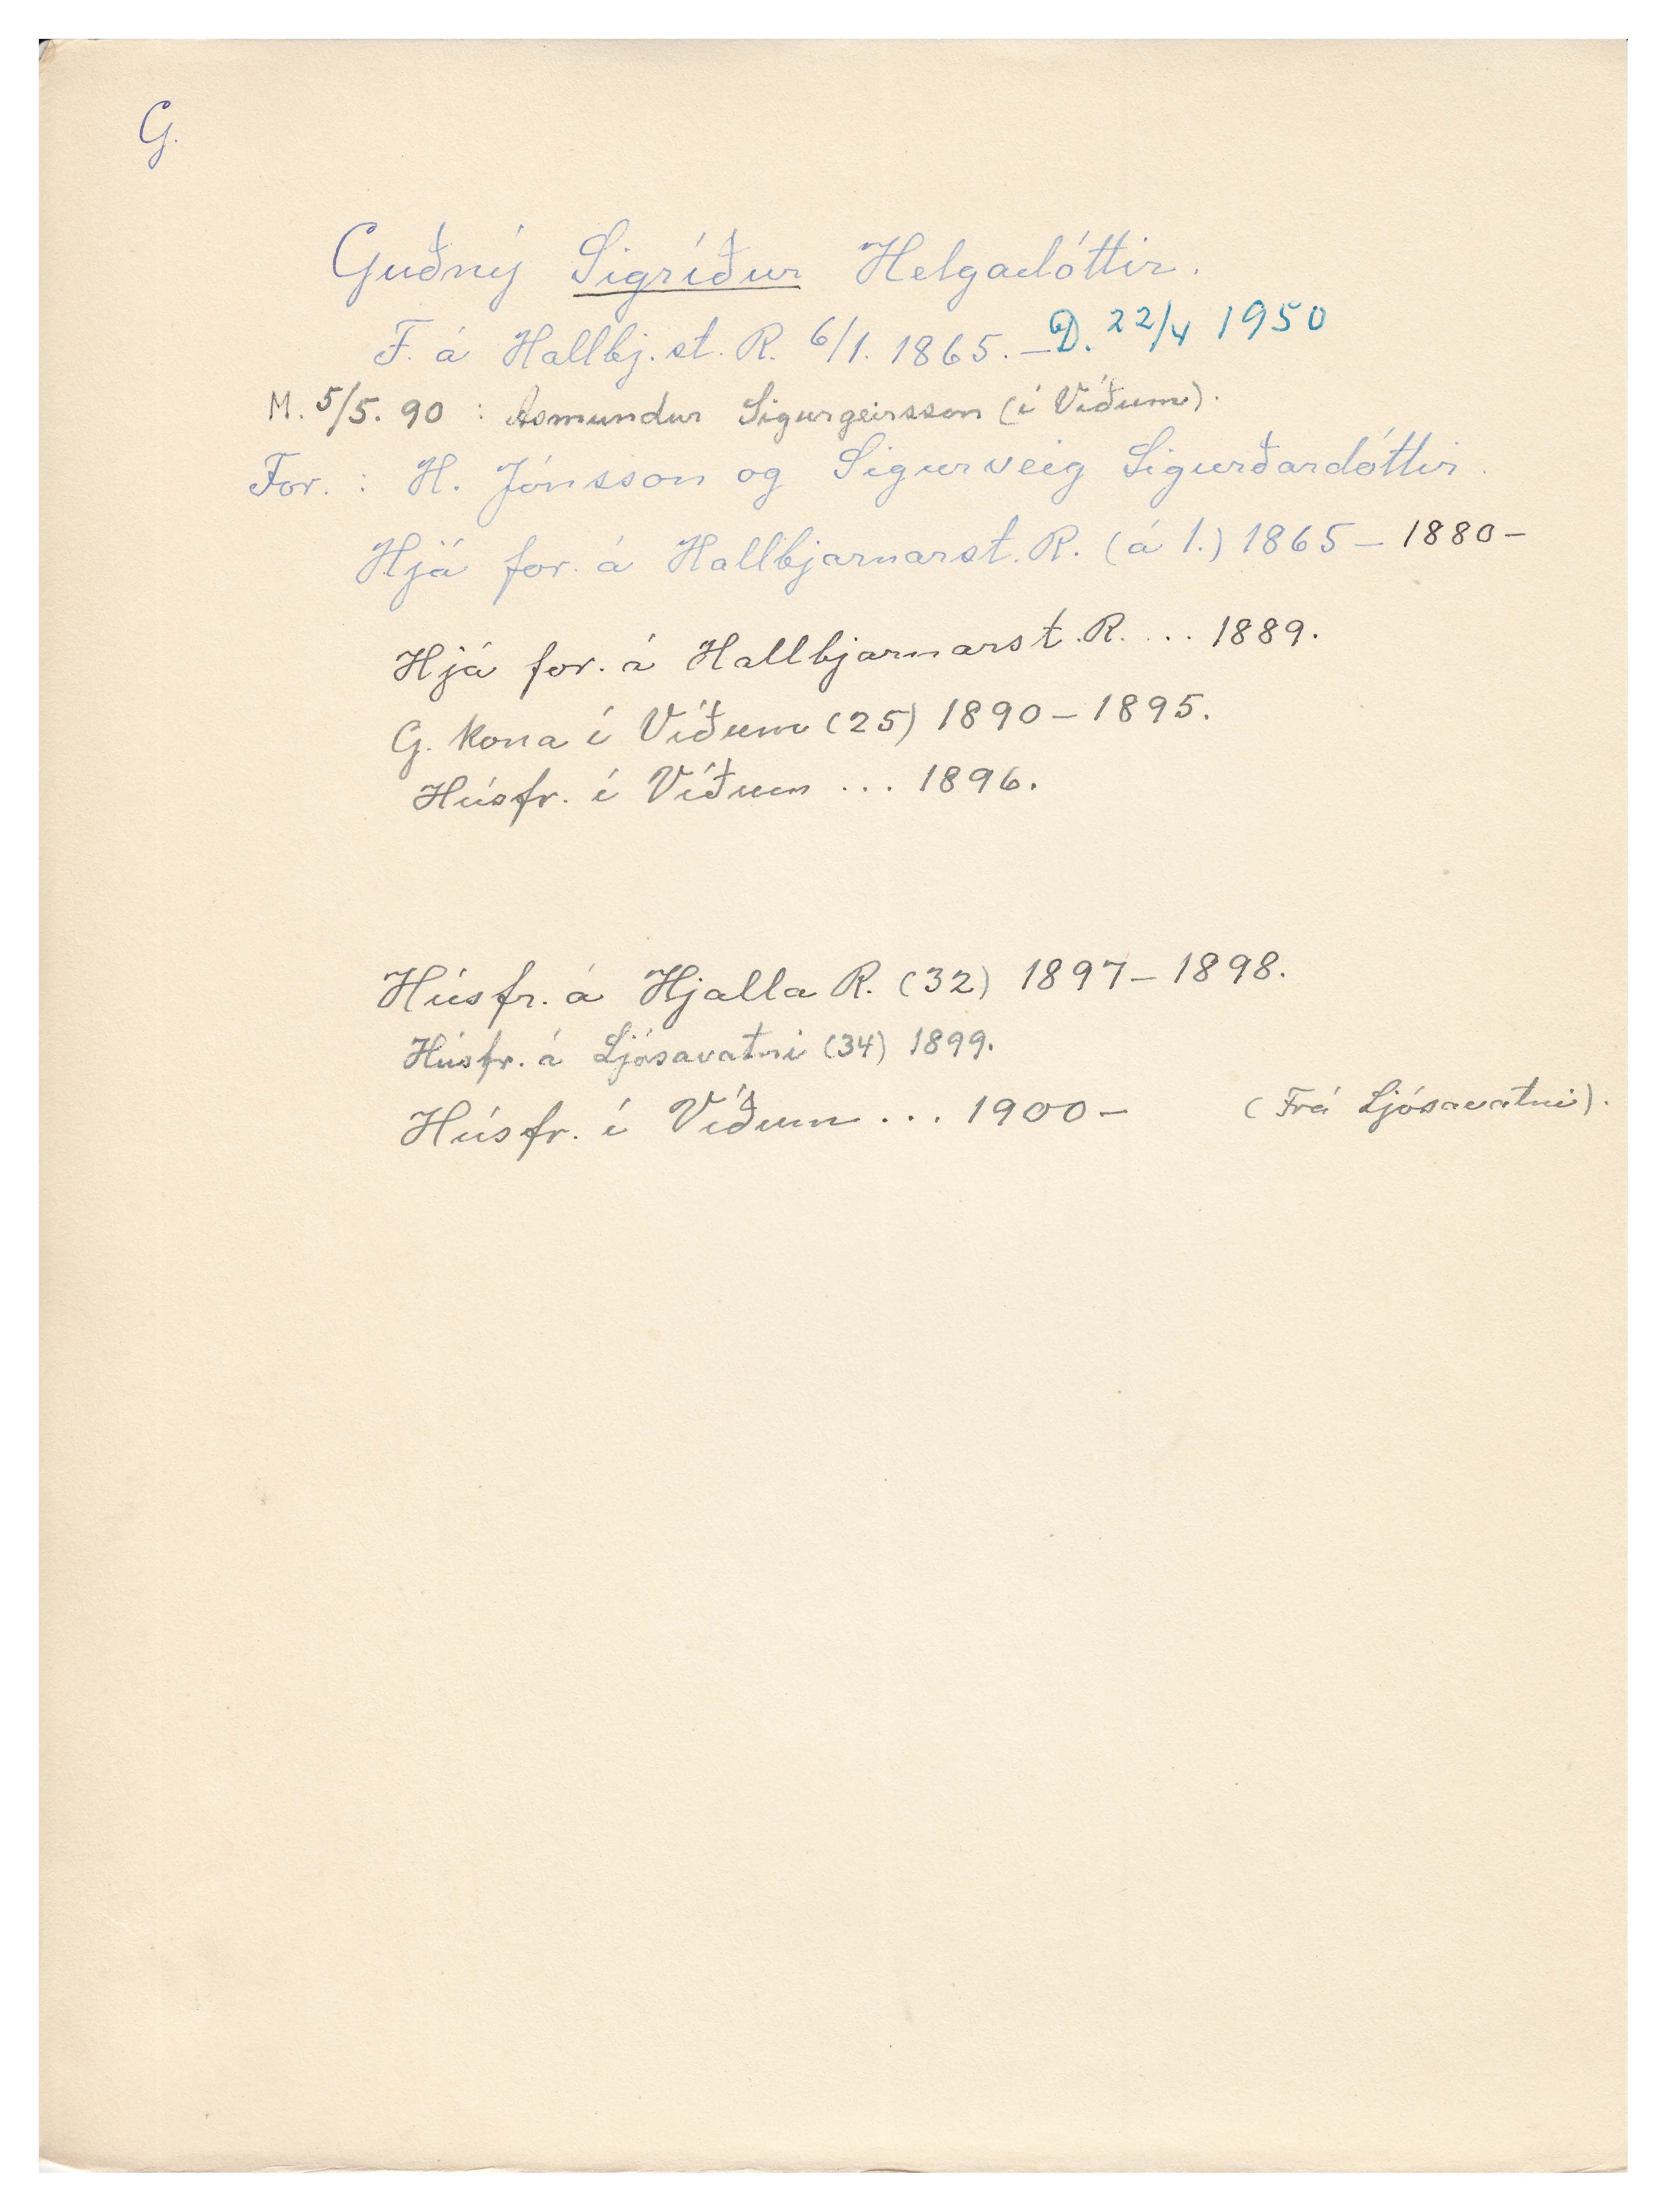 G.
Guðný Sigríður Helgadóttir.
F. á Hallbj.st. R. 6/1. 1865. – D. 22/4 1950
M. 5/5. 90 : Ásmundur Sigurgeirsson (í Víðum).
For. : H. Jónsson og Sigurveig Sigurðardóttir.
Hjá for. á Hallbjarnarst. R. (á 1.) 1865 – 1880 –
Hjá for. á Hallbjarnarst. R. ... 1889.
G. kona í Víðum (25) 1890 – 1895.
Húsfr. í Víðum ... 1896.
Húsfr. á Hjalla R. (32) 1897 – 1898.
Húsfr. á Ljósavatni (34) 1899.
Húsfr. í Víðum ... 1900 – (Frá Ljósavatni).